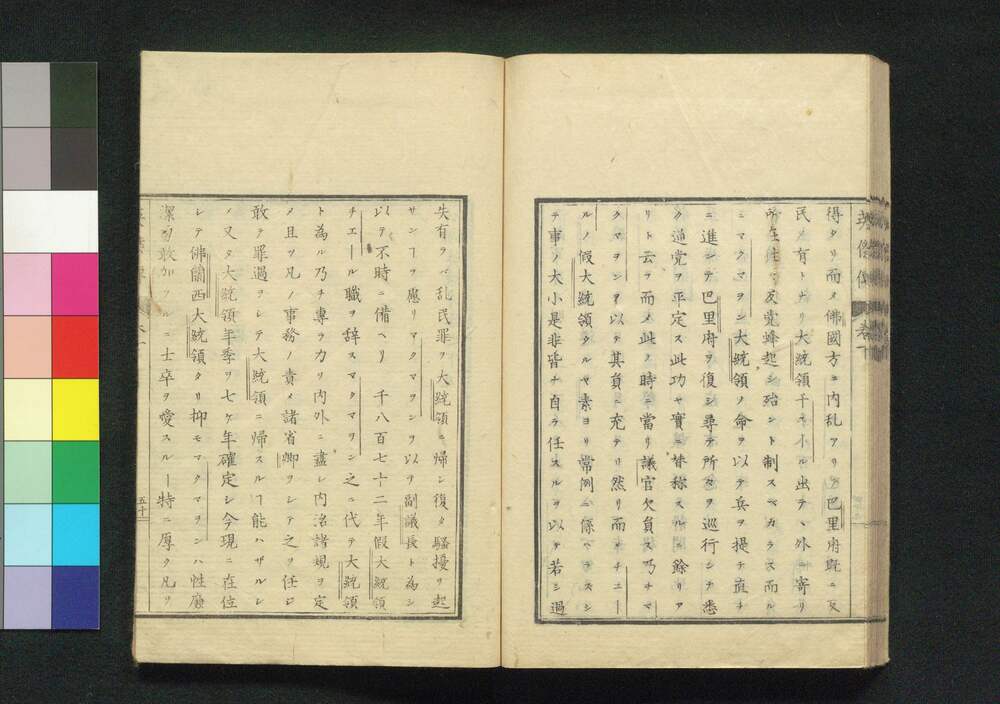 得タリ而メ佛國方ニ内乱アリ巴里府既ニ反
民ノ有トナリ大統領千モ小ル出テヽ外ニ寄リ
所在往々反党蜂起シ殆ント制スベカラス而ル
ニマクマヲン大統領ノ命ヲ以テ兵ヲ提テ直チ
ニ進シテ巴里府ヲ復シ尋テ所々ヲ巡行シテ悉
ク逆党ヲ平定ス此功ヤ實ニ替称スルニ餘リア
リト云フ而メ此ノ時ニ當リ議官欠負ス乃チマ
クマヲンヲ以テ其負ニ充テリ然リ而メチエー
ルノ假大統領タルヤ素ヨリ常例ニ係ヘラスシ
テ事ノ大小是非皆チ自ラ任スルヲ以テ若シ過
失有ラバ乱民罪ヲ大統領ニ帰シ復タ騒擾ヲ起
サンヿヲ慮リマクマヲンヲ以ヲ副議長ト為シ
以テ不時ニ備ヘリ 千八百七十二年假大統領
チエール職ヲ辞スマクマヲン之ニ代テ大統領
ト為ル乃チ専ラ力ヲ内外ニ盡シ内治諸規ヲ定
メ且ツ凡ノ事務ノ責メ諸省卿ヲシテ之ヲ任ピ
敢テ罪過ヲシテ大統領ニ帰スルヿ能ハザルシ
メ又タ大統領年季ヲ七ケ年確定シ今現ニ在位
シテ佛蘭西大統領タリ抑モマクマヲンハ性廉
潔勇敢加フルニ士卒ヲ愛スルー特ニ厚ク凡ヲ
五十一